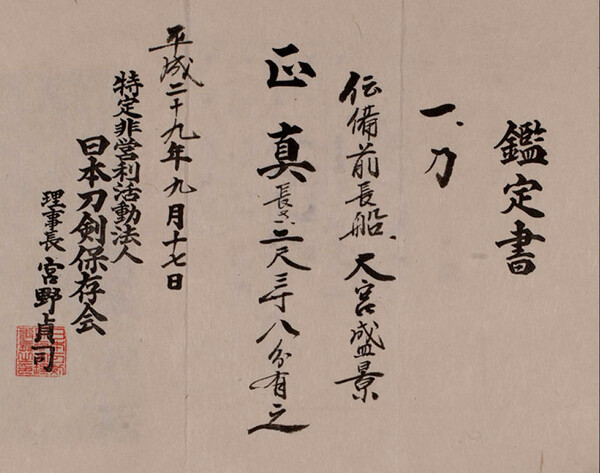 鑑定書
一、刀
伝備前長船、大宮盛景
正真長さ、二尺三寸八分有之
平成二十九年九月十七日
特定非営利活動法人
日本刀剣保存会
理事長 宮野貞司